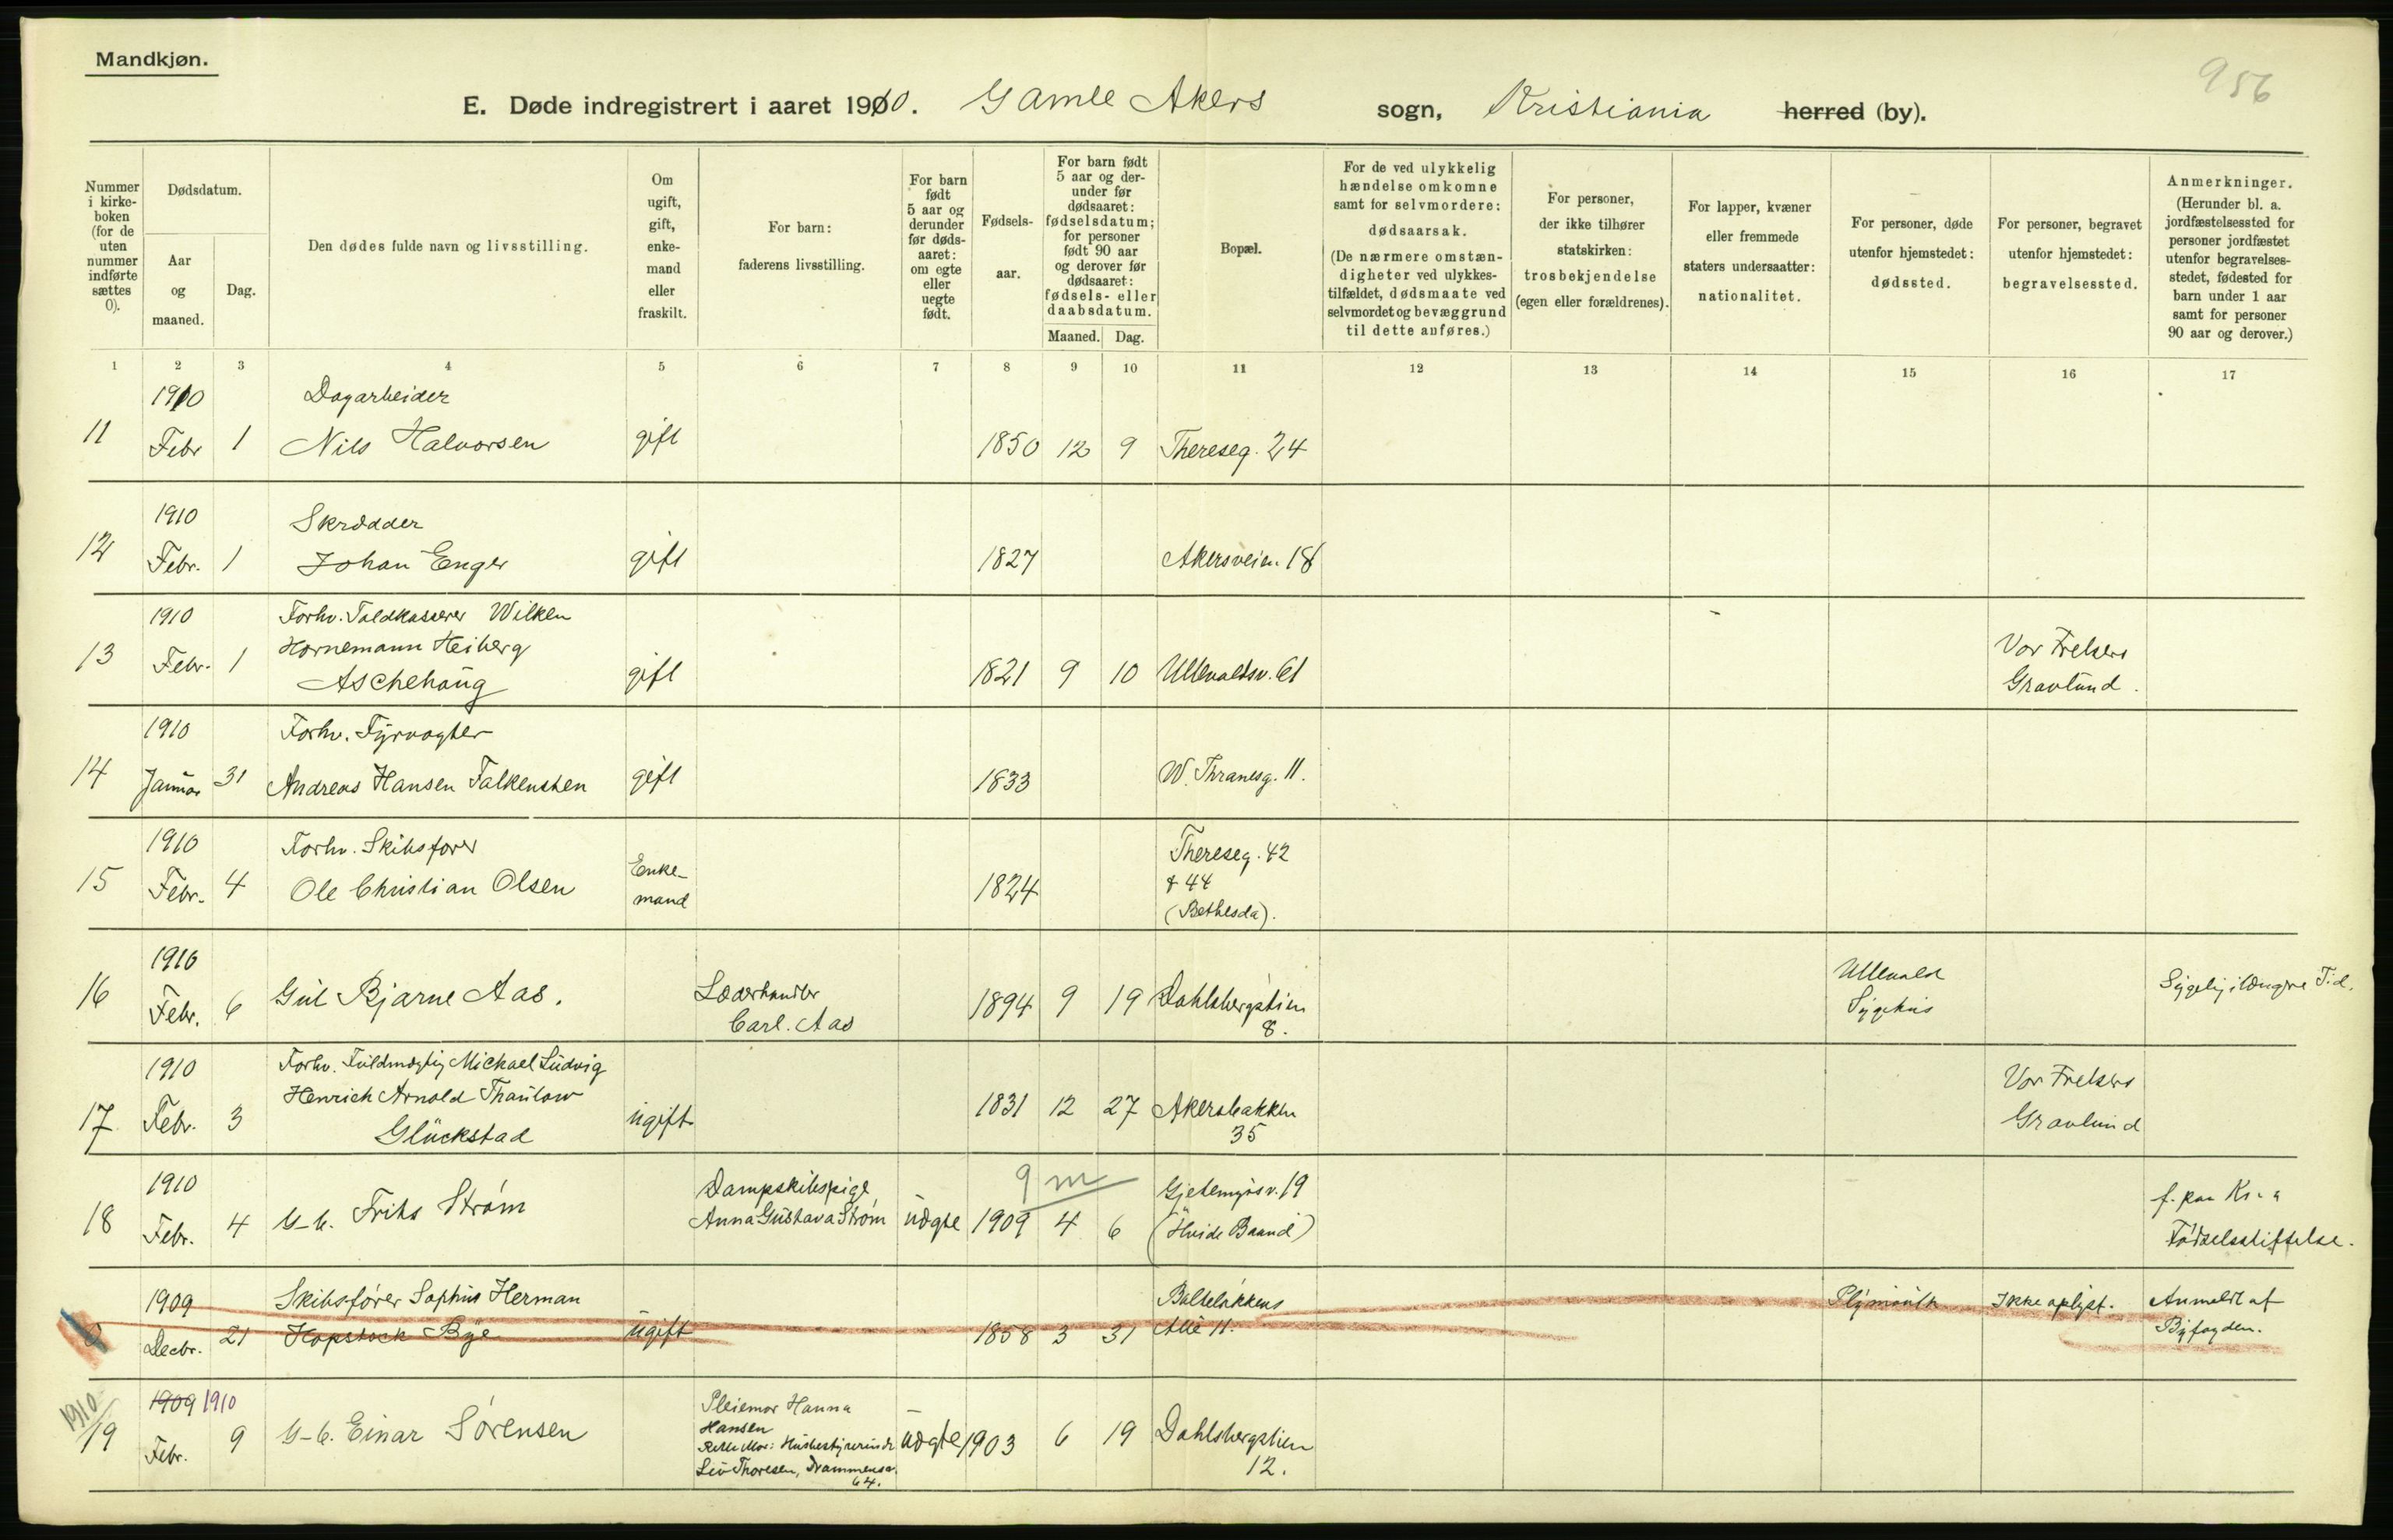 Mandkjøn.
956
E. Døde indregistrert i aaret 1910. Gamle Akers sogn, Kristiania herred (by).
Nummer i kirke-boken (for de uten nummer indførte sættes 0).
Dødsdatum.
Aar og maaned.
Dag.
Den dødes fulde navn og livsstilling.
Om ugift, gift, enke-mand eller fraskilt.
For barn: faderens livsstilling.
For barn født 5 aar og derunder før døds-aaret: om egte eller uegte født.
Fødsels-aar.
For barn født 5 aar og der-under før dødsaaret: fødselsdatum; for personer født 90 aar og derover før dødsaaret: fødsels- eller daabsdatum.
Maaned. Dag.
Bopæl.
For de ved ulykkelig hændelse omkomne samt for selvmordere: dødsaarsak. (De nærmere omstæn-digheter ved ulykkes-tilfældet, dødsmaate ved selvmordet og bevæggrund til dette anføres.)
For personer, der ikke tilhører statskirken: trosbekjendelse (egen eller forældrenes).
For lapper, kvæner eller fremmede staters undersaatter: nationalitet.
For personer, døde utenfor hjemstedet: dødssted.
For personer, begravet utenfor hjemstedet: begravelsessted.
Anmerkninger. (Herunder bl. a. jordfæstelsessted for personer jordfæstet utenfor begravelses-stedet, fødested for barn under 1 aar samt for personer 90 aar og derover.)
1 2 3 4 5 6 7 8 9 10 11 12 13 14 15 16 17
1910 Dagarbeider
11 Febr 1 Nils Halvorsen gift 1850 12 9 Thereseg. 24
1910 Skrædder
12 Febr. 1 Johan Enger gift 1827 Akersveien 18
1910 Forhv. Toldkasserer Wilken
13 Febr. 1 Hornemann Heiberg
Aschehoug gift 1821 9 10 Ullevaldsv. 61 Vor Frelsers
Gravlund.
1910 Forhv. Fyrvogter
14 Januar 31 Andreas Hansen Falkensten gift 1833 W. Thranesg. 11.
1910 Forhv. Skibsfører
15 Febr. 4 Ole Christian Olsen Enke-
mand 1824 Thereseg. 42
& 44
(Bethesda).
1910
16 Febr. 6 Gul Bjarne Aas. Læderhandler
Carl. Aas 1894 9 19 Dahlsbergstien
8. Ullevald
Sygehus Tid.
1910 Forhv. Fuldmægtig Mickael Ludvig
17 Febr. 3 Henrich Arnold Thaulow
Glückstad ugift 1831 12 27 Akersbakken
35 Vor Frelsers
Gravlund
1910 Dampskibspige 9 m Gjetemyrsv. 19 f. paa Kr.a
18 Febr. 4 U-b. Frits Strøm Anna Gustava Strøm uægte 1909 4 6 (Hvide Baand) Fødselsstiftelse.
1909 Skibsfører Sophus Herman Bolteløkkens Plymouth Ikke oplyst. Anmeldt af
0 Decbr. 21 Hopstock Bye ugift 1858 3 31 Allé 11. Byfogden.
1910 1909 1910
19 Febr. 9 U-b. Einar Sørensen Pleiemor Hanna
Hansen
Rette Mor: Husbestyrerinde
Liv Thoresen, Drammensv.
64. uægte 1903 6 19 Dahlsbergstien
12.